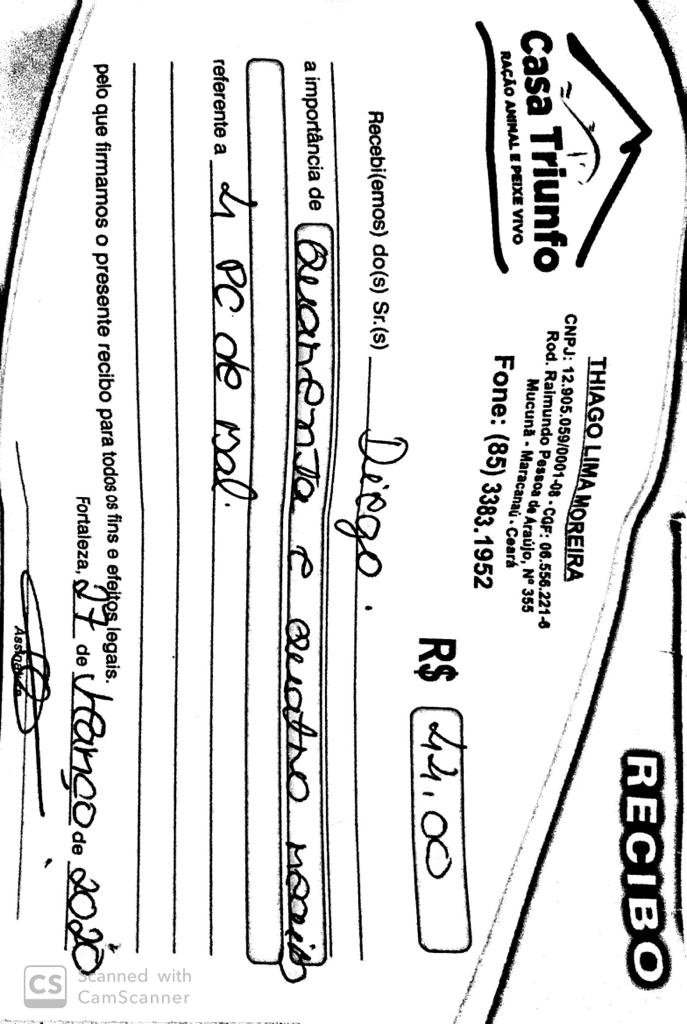 RECIBO
Casa Triunfo
RAÇÃO ANIMAL E PEIXE VIVO
THIAGO LIMA MOREIRA
CNPJ: 12.905.059/0001-08 - CGF: 06.556.221-6
Rod. Raimundo Pessoa de Araújo, Nº 355
Mucunã - Maracanaú - Ceará
Fone: (85) 3383.1952
R$ 44,00
Recebi(emos) do(s) Sr.(s) Diego.
a importância de Quarenta e quatro reais
referente a 4 PC de sal.
pelo que firmamos o presente recibo para todos os fins e efeitos legais.
Fortaleza, 27 de Março de 2020
Assinatura
CS Scanned with
CamScanner